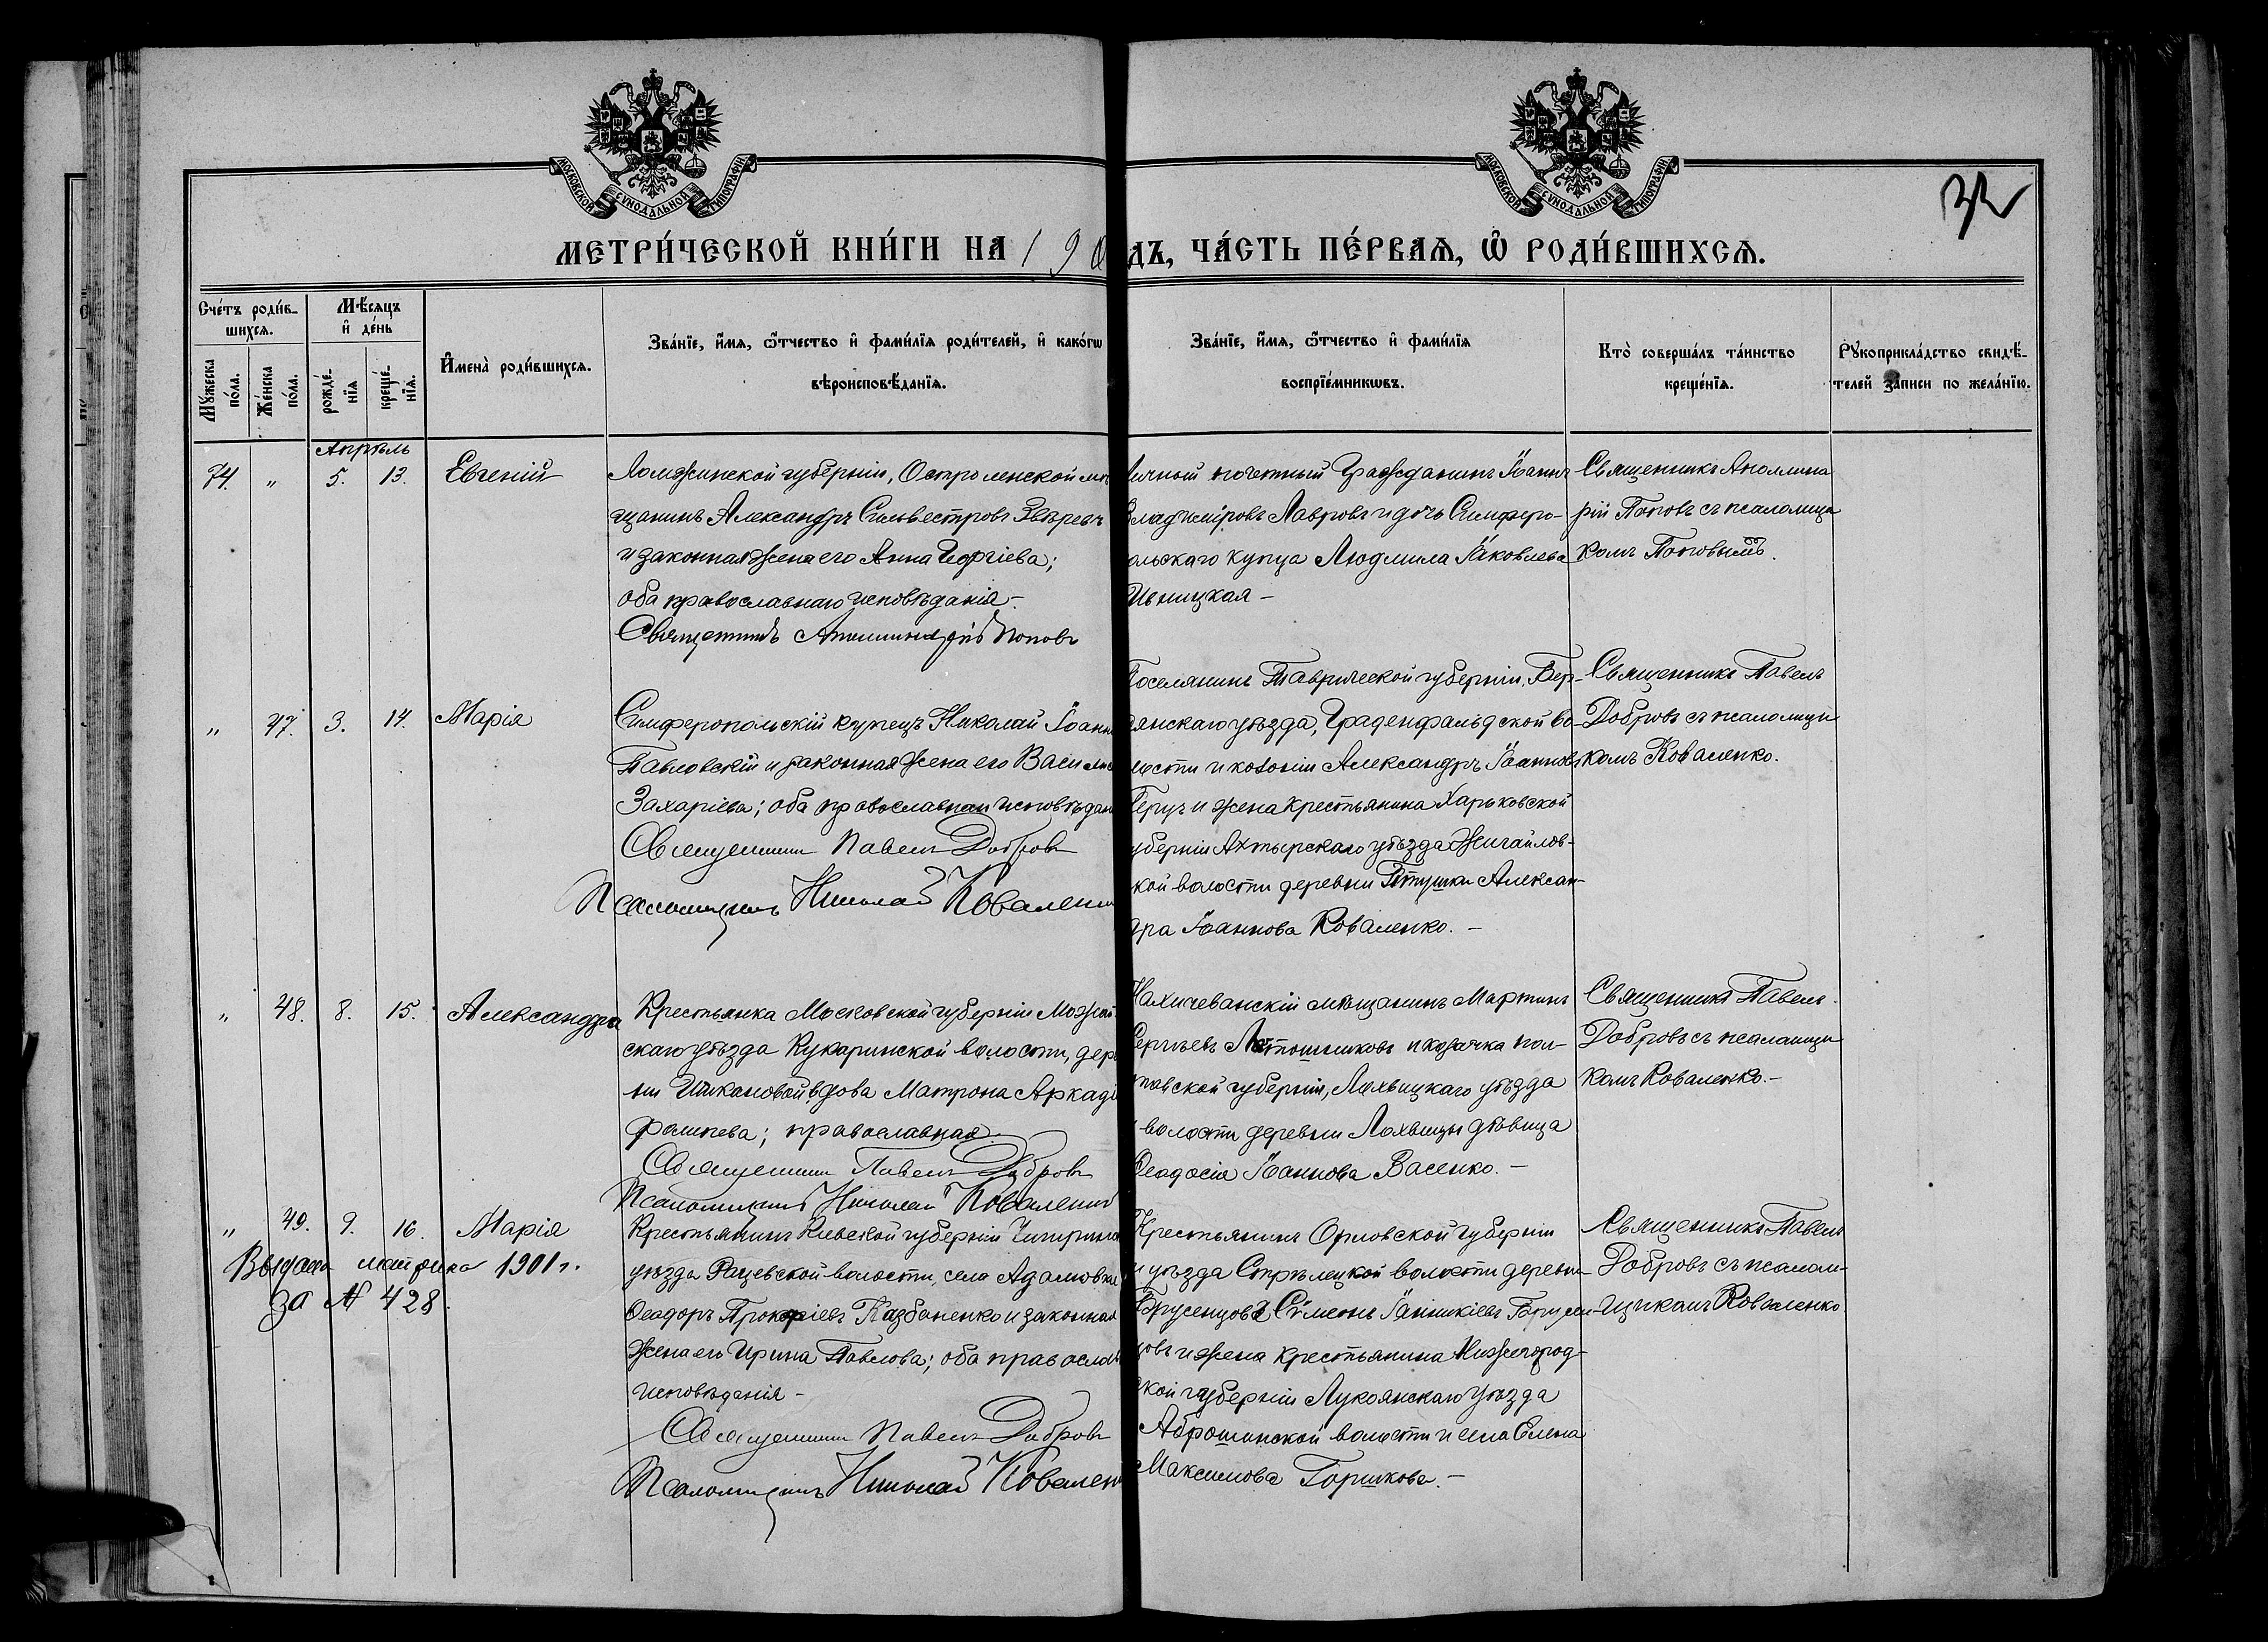 МОСКОВСКОЙ СѴНОДАЛЬНОЙ ТИПОГРАФІИ
МОСКОВСКОЙ СѴНОДАЛЬНОЙ ТИПОГРАФІИ
32
МЕТРИ́ЧЕСКОЙ КНИ́ГИ НА 190
ДЪ, ЧА́СТЬ ПЕ́РВАѦ, Ѡ РОДИ́ВШИХСѦ.
Сче́тъ роди́в-
шихсѧ.
Мѣ́сяцъ
и де́нь
Мꙋ́жеска
по́ла.
Же́нска
по́ла.
рожде́-
нїѧ
креще́-
нїѧ.
Имена̀ роди́вшихсѧ.
Зва́нїе, и́мѧ, ѻ́тчество и фами́лїѧ роди́телей, и како́гѡ
вѣроисповѣ́данїѧ.
Зва́нїе, и́мѧ, ѻ́тчество и фами́лїѧ
воспрїе́мникѡвъ.
Кто̀ соверша́лъ та́инство
креще́нїѧ.
Рꙋкоприкла́дство свидѣ́-
телей за́писи по жела́нїю.
Апрѣль
74. " 5. 13. Евгеній
Ломжинской губерніи, Остроленской мѣ
щанинъ Александръ Сильвестровъ Звѣревъ
и законная жена его Анна Георгіева;
оба православнаго исповѣданія –
Священникъ Аполлинарій Поповъ
ичный почетный Гражданинъ Іоаннъ
Владиміровъ Лавровъ и дочь Симферо-
ольскаго купца Людмила Яковлева
Ивницкая –
Священникъ Аполлина
рій Поповъ съ псаломщи
комъ Поповымъ.
" 47. 3. 14. Марія
Симферопольскій купецъ Николай Іоанн
Павловскій и законная жена его Васили
Захаріева; оба православнаго исповѣдан
Священникъ Павелъ Добровъ
Псаломщикъ Николай Коваленк
Поселянинъ Таврической губерніи, Бер-
дянскаго уѣзда, Граденфельдской во-
лости и колоніи Александръ Іоанновъ
Герцъ и жена крестьянина Харьковской
уберніи Ахтырскаго уѣзда Жигайлов-
кой волости деревни Птушки Алексан-
дра Іоаннова Коваленко. –
Священникъ Павелъ
Добровъ съ псаломщи
комъ Коваленко.
" 48. 8. 15. Александра
Крестьянка Московской губерніи Можай
скаго уѣзда Кукаринской волости, дере
ни вдова Матрона Аркадіе
Филипева; православная.
Священникъ Павелъ Добровъ
Псаломщикъ Николай Коваленко
Нахичеванскій мѣщанинъ Мартынъ
Сергѣевъ и казачка пол-
тавской губерніи, Лохвицкаго уѣзда
волости деревни Лохвицы дѣвица
Ѳеодосія Іоаннова Васенко. –
Священникъ Павелъ
Добровъ съ псаломщи
комъ Коваленко. –
" 49. 9. 16. Марія
Выдана метрика 1901 г.
за № 428.
Крестьянинъ Кіевской губерніи Чигиринск
уѣзда Рацевской волости, села Адамовки
Ѳеодоръ Прокопіевъ Казбаненко и законная
жена его Ирина Павлова; оба православ
исповѣданія –
Священникъ Павелъ Добровъ
Псаломщикъ Николай Ковален
Крестьянинъ Орловской губерніи
и уѣзда Стрѣлецкой волости деревни
Брусенцовъ Сѵмеонъ
цовъ и жена крестьянина Нижегород-
ской губерніи Лукоянскаго уѣзда
волости и села Елена
Максимова Горшкова. –
Священникъ Павелъ
Добровъ съ псалом-
щикомъ Коваленко